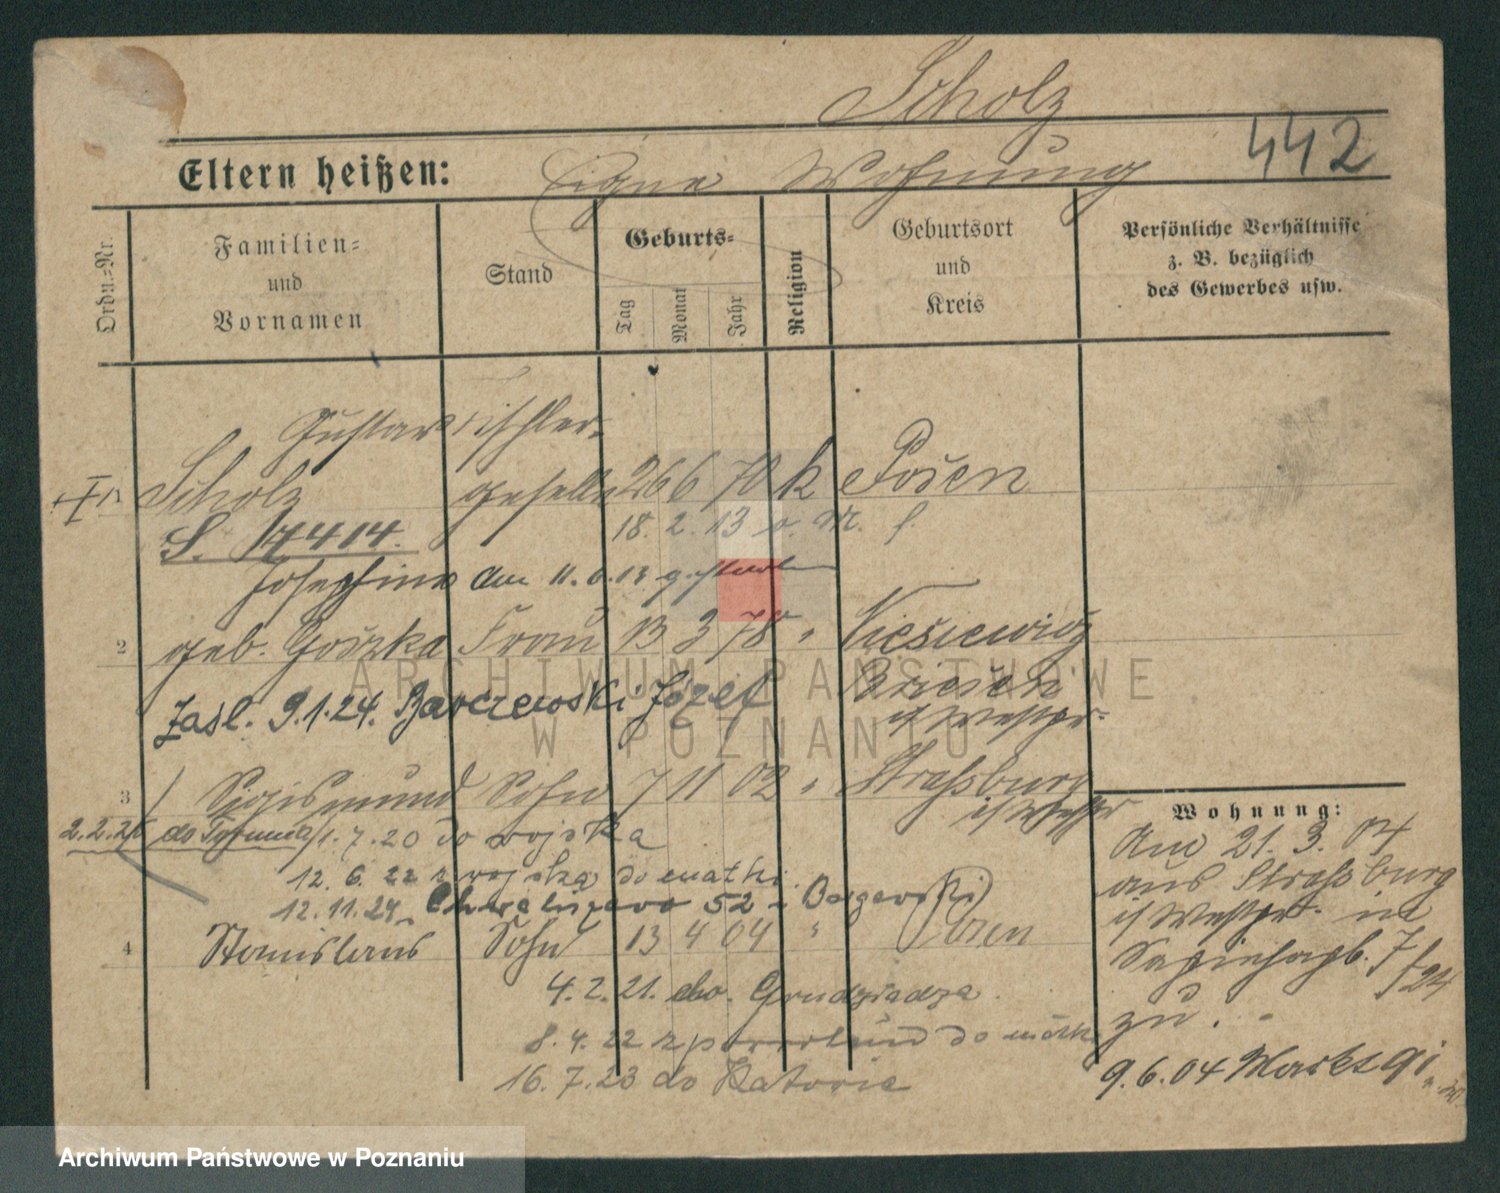 Scholz
442
Eltern heißen: Eigne Wohnung
Ordn.-Nr.
Familien-
und
Vornamen
Stand
Geburts-
Tag
Monat
Jahr
Religion
Geburtsort
und
Kreis
Persönliche Verhältnisse
z. B. bezüglich
des Gewerbes usw.
Gustav Tischler-
Scholz geselle 26 6 70 k Posen
S. 17414. 18. 2. 13
Josephine am 11. 6. 13
2 geb. Goszka Frau 13 3 78 " Niesiewicz
Briesen
i/ Westpr.
Zasl. 9.1.24. Barczewski Józef
3 Sigismund Sohn 7 11 02 " Strassburg
i/ Westpr
2.2.25 do Torunia 1.7.20 do wojska
12. 6. 22 z wojska do matki
12. 11. 24 52
4 Stanislaus Sohn 13 4 04 "
4. 2. 21. do Grudziądza
8. 4. 22 z do matki
16. 7. 23 do
Wohnung:
Am 21. 3. 04
aus Strassburg
i/ Westpr. in
Sapiehapl. 7
/24
zu.
9. 6. 04
ARCHIWUM PAŃSTWOWE
W POZNANIU
Archiwum Państwowe w Poznaniu